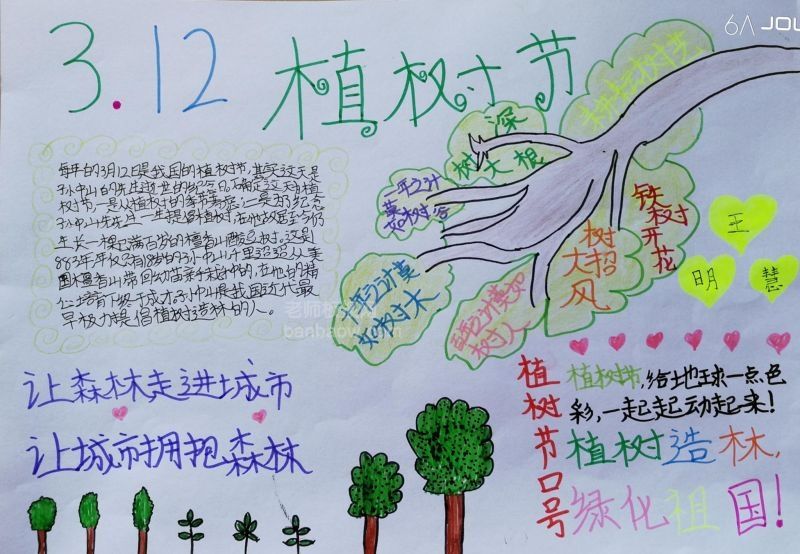 6A JOU
3.12 植树节
每年的3月12日是我国的植树节,其实这天是
孙中山的先生逝世的纪念日,确定这天为植
树节,一是从植树的季节考虑,二是为纪念
孙中山先生。先生一生提倡植树,在他故居至今仍
生长一棵已满百岁的檀香山酸豆树。这是
883年,年仅
的孙中山千里迢迢从美
国檀香山带回幼苗亲手种的,在他的精
心培育下终于成才。孙中山是我国近代最
早极力提倡植树造林的人。
老师板报网
banbaow.com
树大根深
耕耘树艺
一年之计莫如树谷
十年之计莫如树木
终身之计莫如树人
树大招风
铁树开花
王
明
慧
让森林走进城市
让城市拥抱森林
植树节口号
植树节,给地球一点色
彩,一起起动起来!
植树造林,
绿化祖国!